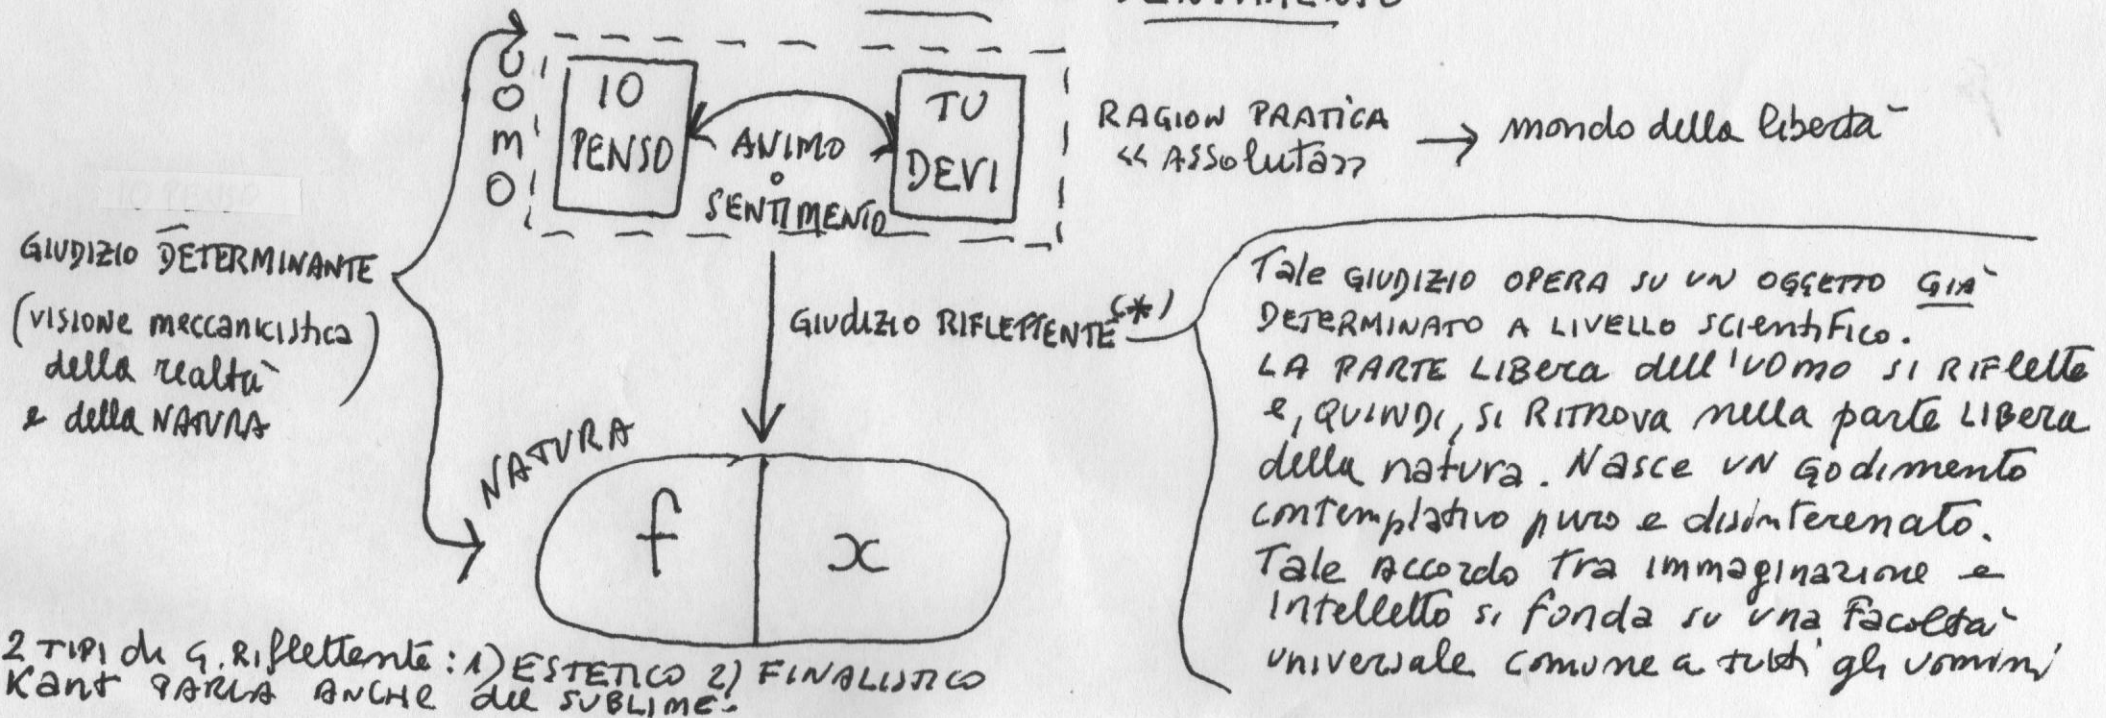 UOMO
IO
PENSO
ANIMO
O
SENTIMENTO
TU
DEVI
RAGION PRATICA → mondo della libertà
<< ASSolutà>>
GIUDIZIO DETERMINANTE
(visione meccanicistica)
della realtà
e della NATURA
GIUDIZIO RIFLETTENTE (*)
NATURA
f
x
Tale GIUDIZIO OPERA SU UN OGGETTO GIÀ
DETERMINATO A LIVELLO SCIENTIFICO.
LA PARTE LIBERA dell'UOMO SI RIFLETTE
e, QUINDI, SI RITROVA nella parte LIBERA
della natura. Nasce UN Godimento
contemplativo puro e disinteressato.
Tale ACCORDO Tra IMMAGINAZIONE e
INTELLETTO si fonda su una facoltà
universale comune a tutti gli uomini
2 TIPI di G. Riflettente: 1) ESTETICO 2) FINALISTICO
Kant PARLA ANCHE del SUBLIME.